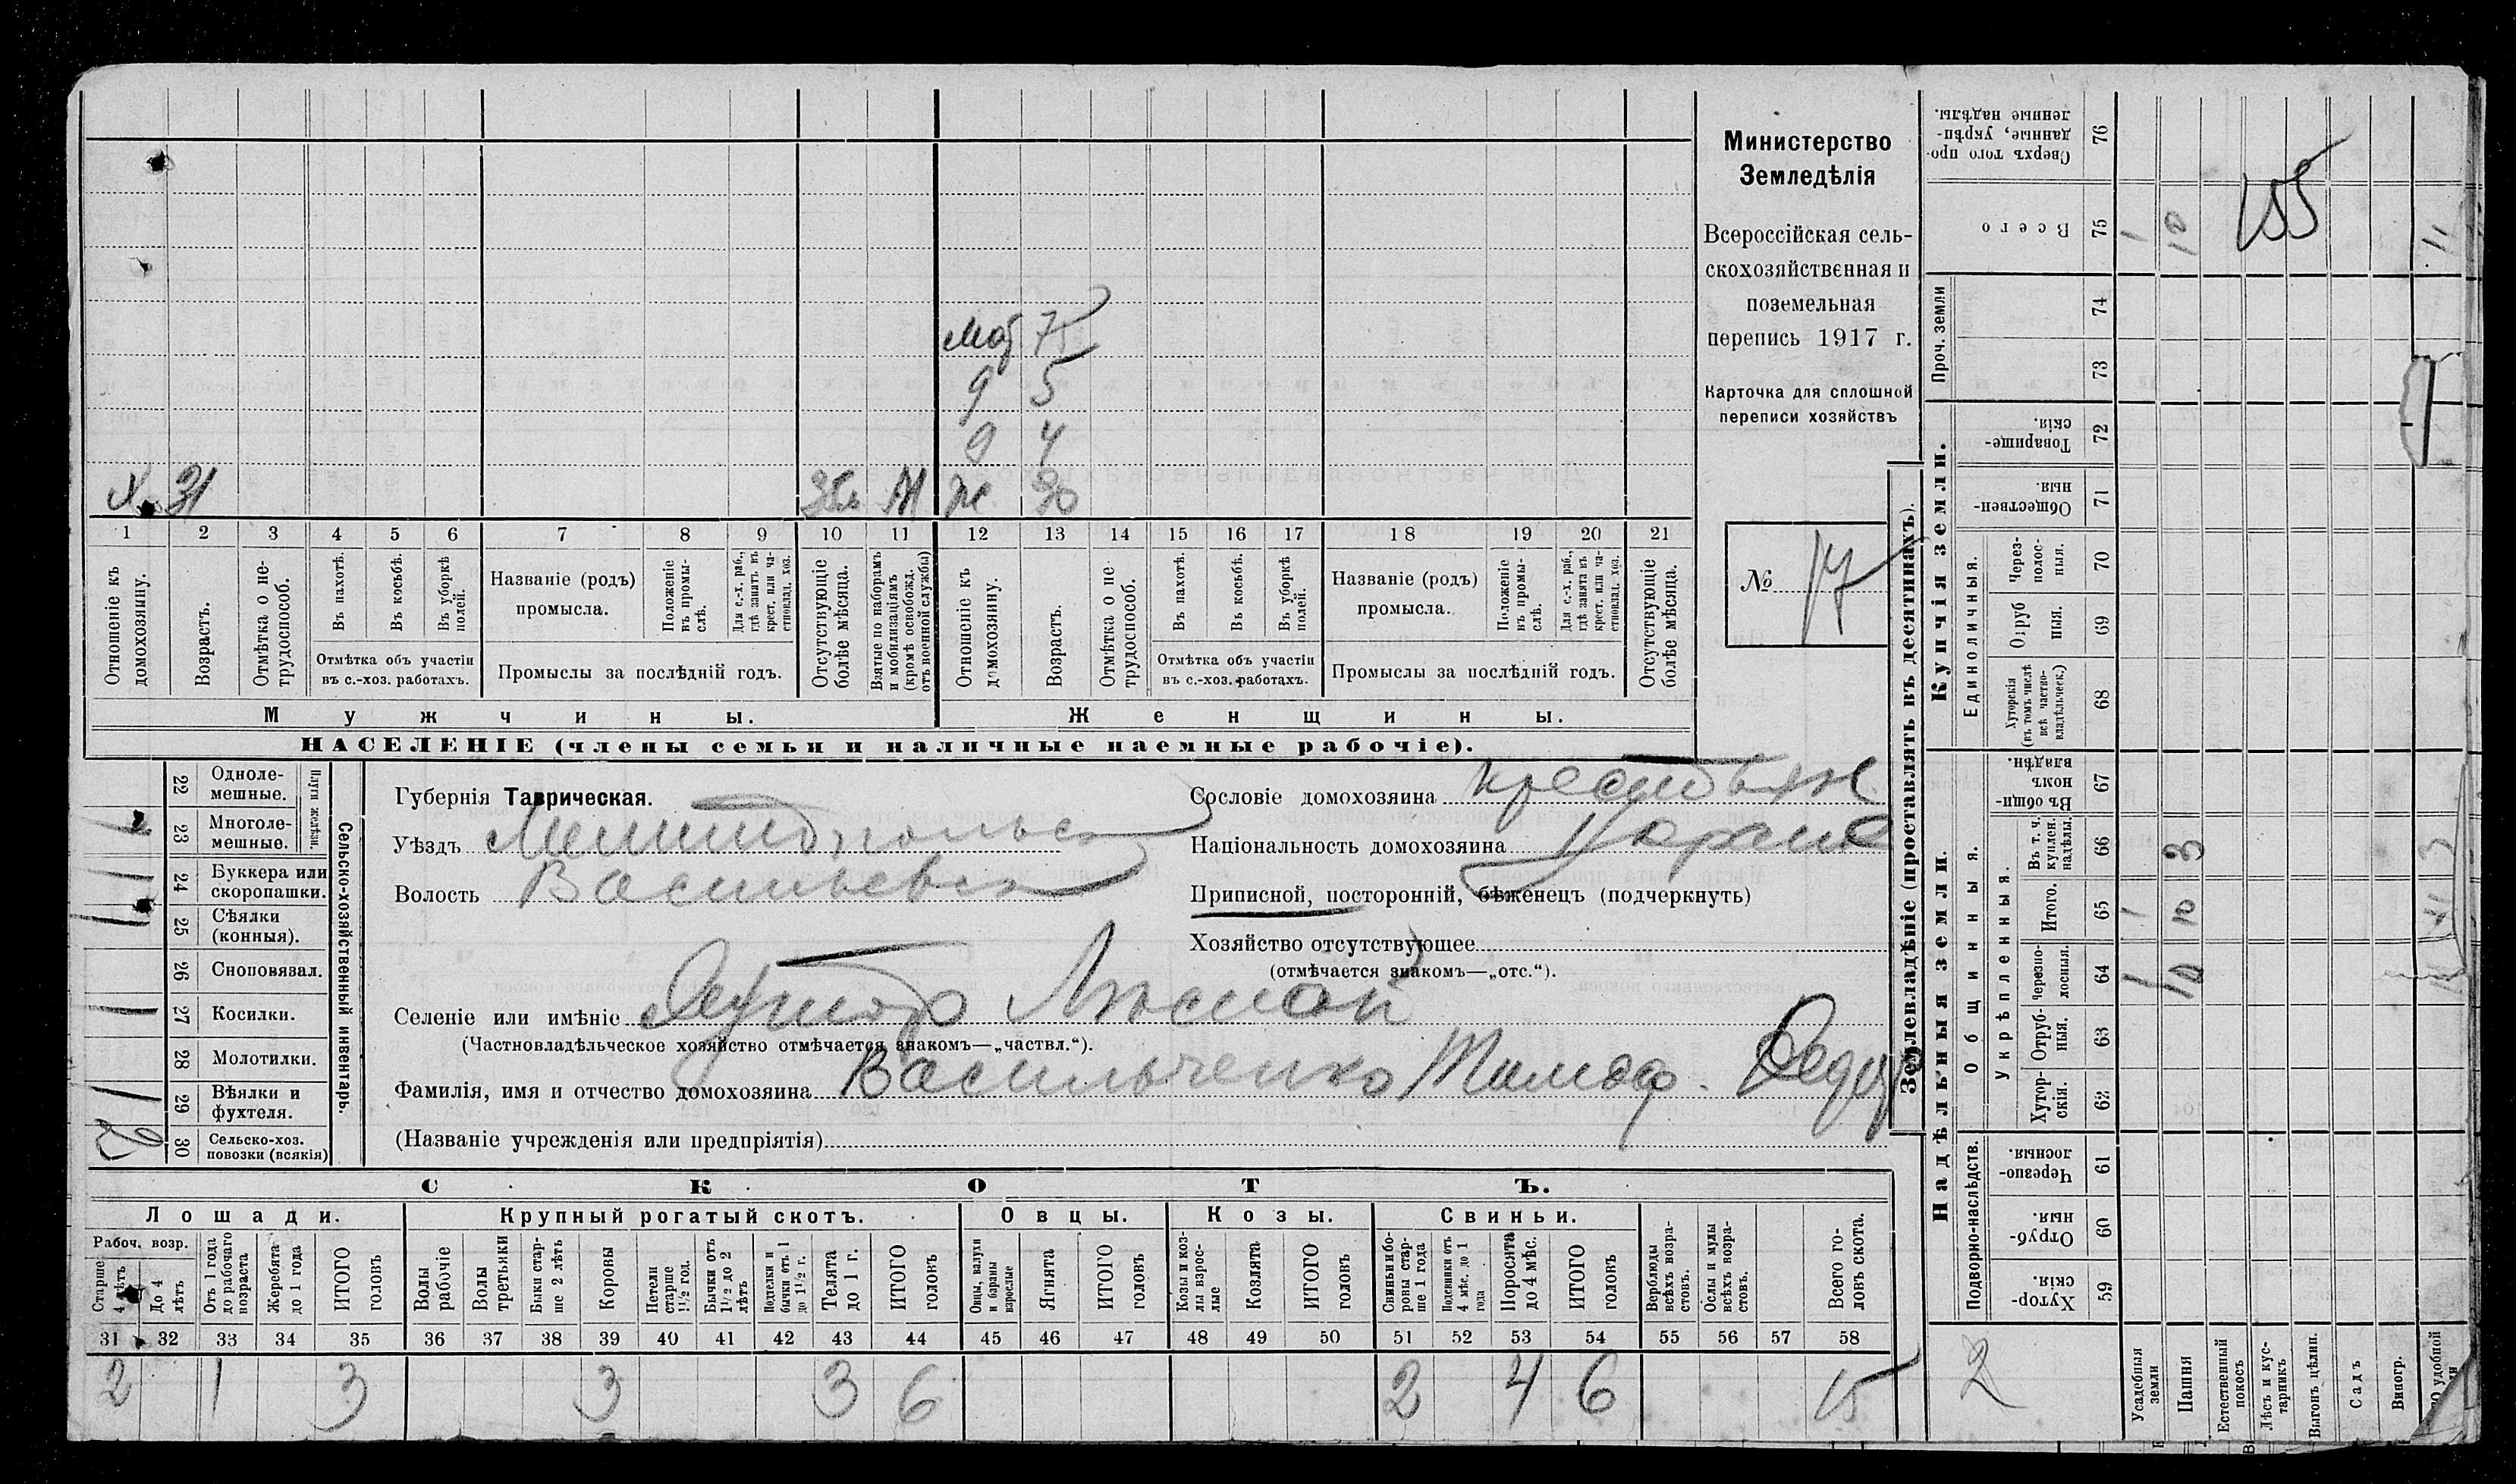 Министерство
Земледѣлія
Всероссійская сель-
скохозяйственная и
поземельная
перепись 1917 г.
Карточка для сплошной
переписи хозяйствъ
№ 17
Мат 75
9 5
9 4
Х 31 М Ж 30
1 2 3 4 5 6 7 8 9 10 11 12 13 14 15 16 17 18 19 20 21
Отношеніе къ домохозяину.
Возрастъ.
Отмѣтка о не-трудоспособ.
Въ пахотѣ.
Въ косьбѣ.
Въ уборкѣ полей.
Отмѣтка объ участіи
въ с.-хоз. работахъ.
Названіе (родъ)
промысла.
Положеніе въ промы-слѣ.
Для с.-х. раб., гдѣ занятъ въ крест. или ча-стновлад. хоз.
Промыслы за послѣдній годъ.
Отсутствующіе болѣе мѣсяца.
Взятые по наборамъ и мобилизаціямъ (кромѣ освобожд. отъ военной службы)
Отношеніе къ домохозяину.
Возрастъ.
Отмѣтка о не-трудоспособ.
Въ пахотѣ.
Въ косьбѣ.
Въ уборкѣ полей.
Отмѣтка объ участіи
въ с.-хоз. работахъ.
Названіе (родъ)
промысла.
Положеніе въ промы-слѣ.
Для с.-х. раб., гдѣ занята въ крест. или ча-стновлад. хоз.
Промыслы за послѣдній годъ.
Отсутствующіе болѣе мѣсяца.
Мужчины.
Женщины.
НАСЕЛЕНІЕ (члены семьи и наличные наемные рабочіе).
Сельско-хозяйственный инвентарь.
Плуги желѣзн.
22 Одноле-мешные.
23 Многоле-мешные.
24 Буккера или скоропашки.
25 Сѣялки (конныя).
26 Сноповязал.
27 Косилки.
28 Молотилки.
29 Вѣялки и фухтеля.
30 Сельско-хоз. повозки (всякія)
Губернія Таврическая.
Уѣздъ Мелитопольск
Волость Васильевск
Сословіе домохозяина
Національность домохозяина
Приписной, посторонній, бѣженецъ (подчеркнуть)
Хозяйство отсутствующее
(отмѣчается знакомъ—„отс.“).
Селеніе или имѣніе Хуторъ Лѣсной
(Частновладѣльческое хозяйство отмѣчается знакомъ—„частвл.“).
Фамилія, имя и отчество домохозяина Васильченко Тимоф. Федор
(Названіе учрежденія или предпріятія)
СКОТЪ.
Лошади. Крупный рогатый скотъ. Овцы. Козы. Свиньи.
Рабоч. возр.
Старше 4 лѣтъ
До 4 лѣтъ
Отъ 1 года до рабочаго возраста
Жеребята до 1 года
ИТОГО головъ
Волы рабочіе
Волы третьяки
Быки стар-ше 2 лѣтъ
Коровы
Нетели старше 1½ год.
Бычки отъ 1½ до 2 лѣтъ
Подтелки и бычки отъ 1 до 1½ г.
Телята до 1 г.
ИТОГО головъ
Овцы, валухи и бараны взрослые
Ягнята
ИТОГО головъ
Козы и коз-лы взрос-лые
Козлята
ИТОГО головъ
Свиньи и бо-ровы стар-ше 1 года
Подсвинки отъ 4 мѣс. до 1 года
Поросята до 4 мѣс.
ИТОГО головъ
Верблюды всѣхъ возра-стовъ.
Ослы и мулы всѣхъ возра-стовъ.
Всего го-ловъ скота.
31 32 33 34 35 36 37 38 39 40 41 42 43 44 45 46 47 48 49 50 51 52 53 54 55 56 57 58
2 1 3 3 3 6 2 4 6 15
Землевладѣніе (проставлять въ десятинахъ).
Надѣльныя земли.
Купчія земли.
Подворно-наслѣдств.
Общинныя.
Укрѣпленныя.
Единоличныя.
Проч. земли
59 Хутор-скія.
60 Отруб-ныя.
61 Черезпо-лосныя.
62 Хутор-скія.
63 Отруб-ныя.
64 Черезпо-лосныя. 1 10
65 Итого. 1 10
66 Въ т. ч. куплен. надѣлы. 3
67 Въ общин-номъ владѣн.
68 Хуторскія (въ томъ числѣ всѣ частно-владѣльческ.)
69 Отрубныя.
70 Через-полос-ныя.
71 Обществен-ныя.
72 Товарище-скія.
73
74
75 Всего 1 10 11
76 Сверхъ того про-данные, укрѣп-ленные надѣлы.
155
2
Усадебныя земли
Пашня
Естественный покосъ
Лѣсъ и кус-тарникъ
Выгонъ цѣлин.
Садъ
Виногр.